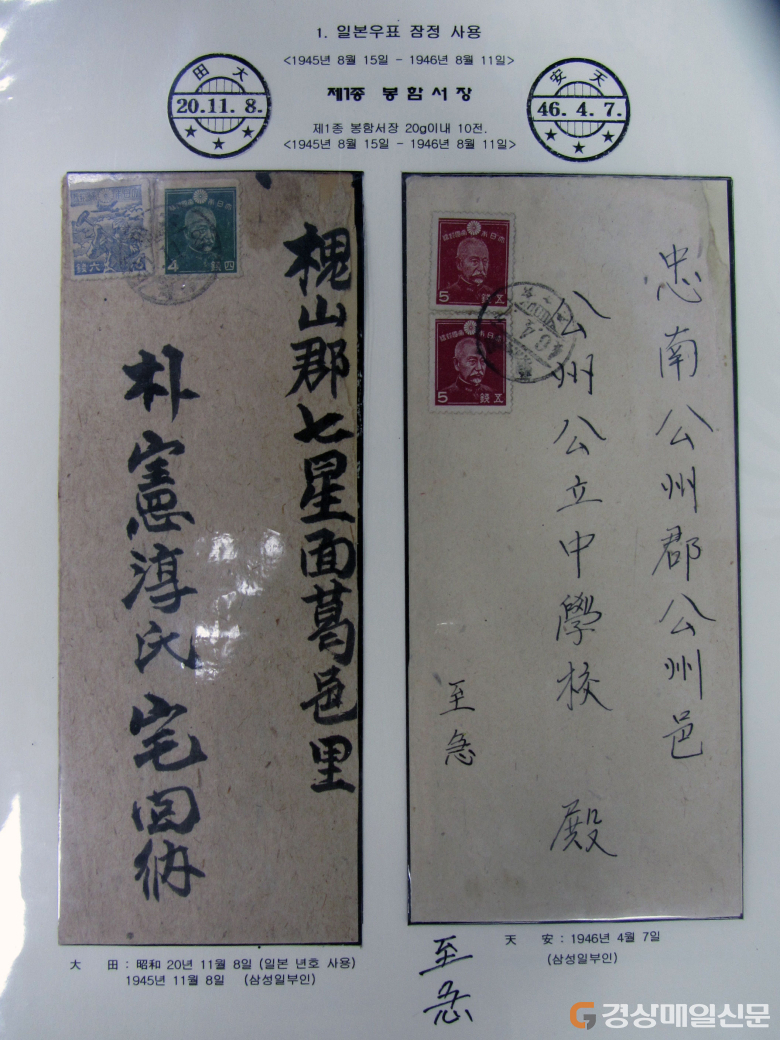 1. 일본우표 잠정 사용
<1945년 8월 15일 - 1946년 8월 11일>
田 大
20.11. 8.
제1종 봉함서장
安 天
46. 4. 7.
제1종 봉함서장 20g이내 10전.
<1945년 8월 15일 - 1946년 8월 11일>
六 錢
4 錢 四
槐山郡七星面葛邑里
朴憲淳氏宅回納
5 錢 五
5 錢 五
忠南公州郡公州邑
公州公立中學校 殿
至急
大 田 : 昭和 20년 11월 8일 (일본 년호 사용)
1945년 11월 8일 (삼성일부인)
天 安 : 1946년 4월 7일
(삼성일부인)
至急
경상매일신문